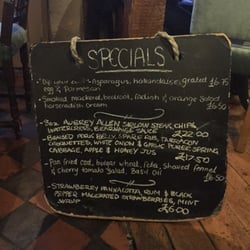 SPECIALS
Asparagus, hollandaise, grated £6.75
egg & Parmesan
Smoked mackerel, beetroot, radish & orange salad £6.50
horseradish cream
8oz AUBREY ALLEN SIRLOIN STEAK, CHIPS,
WATERCRESS, BEARNAISE SAUCE £22.00
BRAISED PORK BELLY, SPARE RIB, BACON
CROQUETTES, WHITE ONION & GARLIC PUREE, SPRING
CABBAGE, APPLE & HONEY JUS £17.50
Pan fried cod, bulgur wheat, feta, shaved fennel
& cherry tomato salad, basil oil £16.50
STRAWBERRY PANNACOTTA, RUM & BLACK
PEPPER MACERATED STRAWBERRIES, MINT
SYRUP £6.00